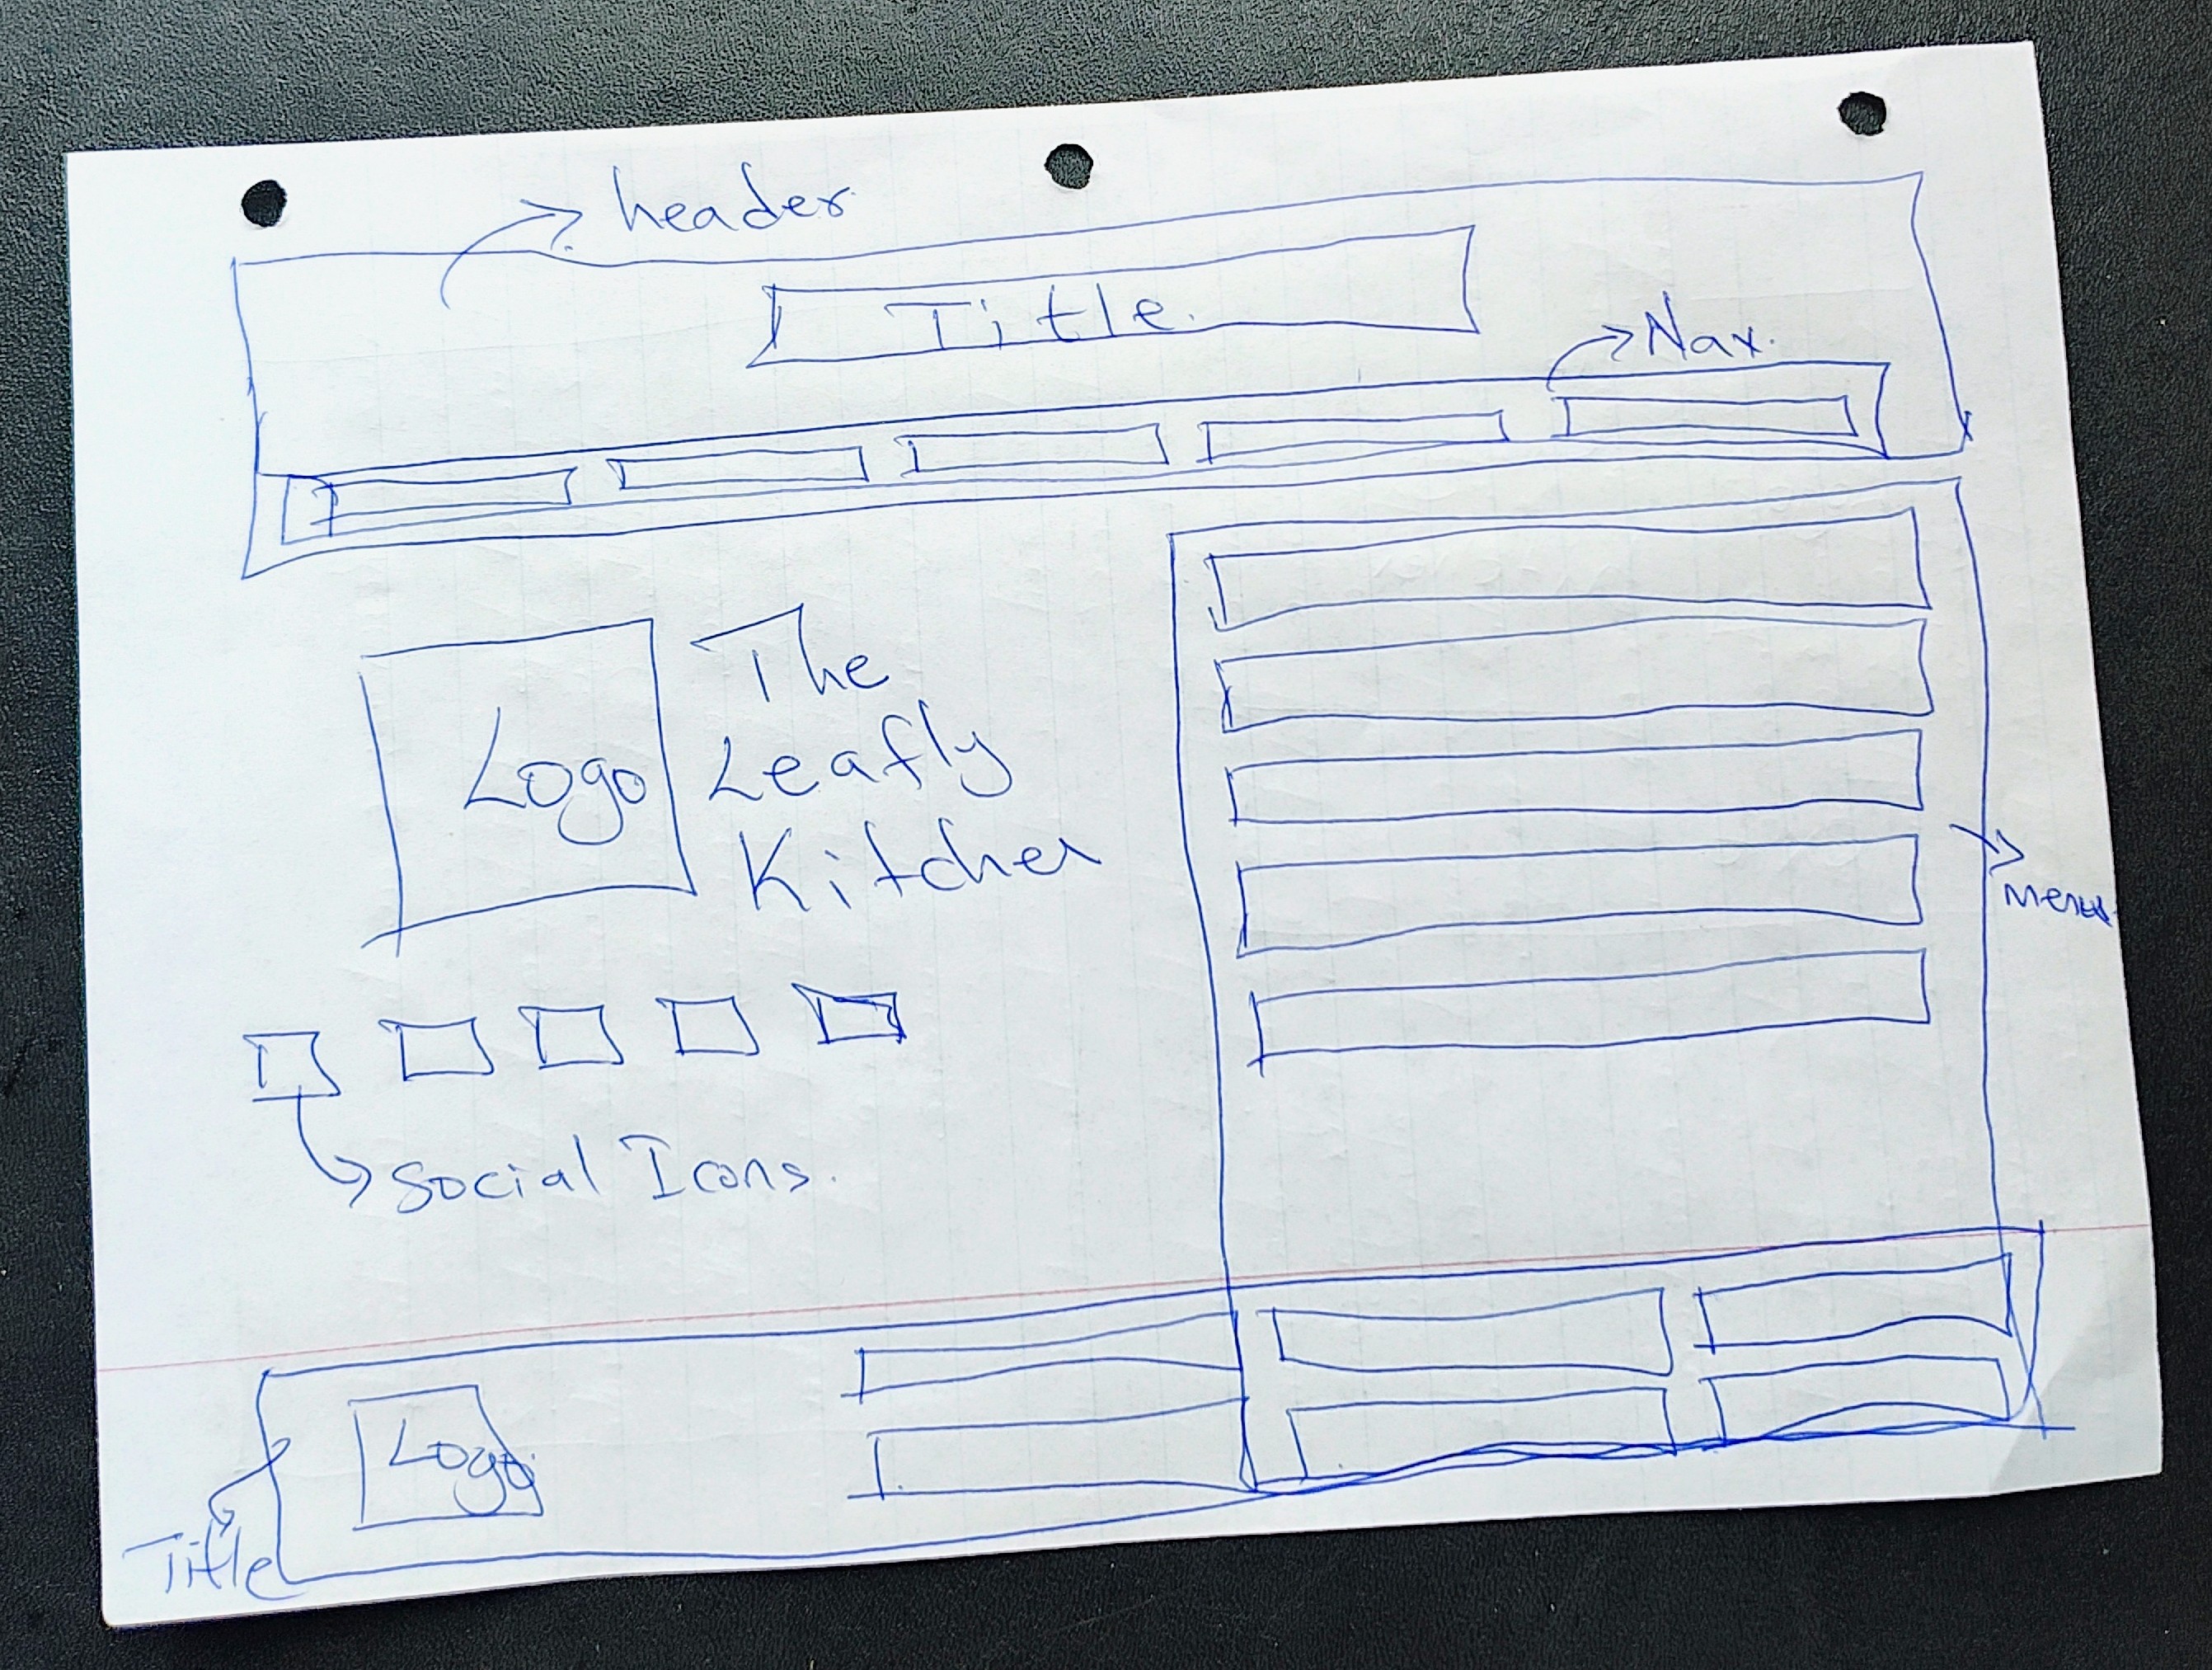 header
Title
Nav.
The
Leafly
Kitchen
Logo
Menu
Social Icons.
Logo
Title